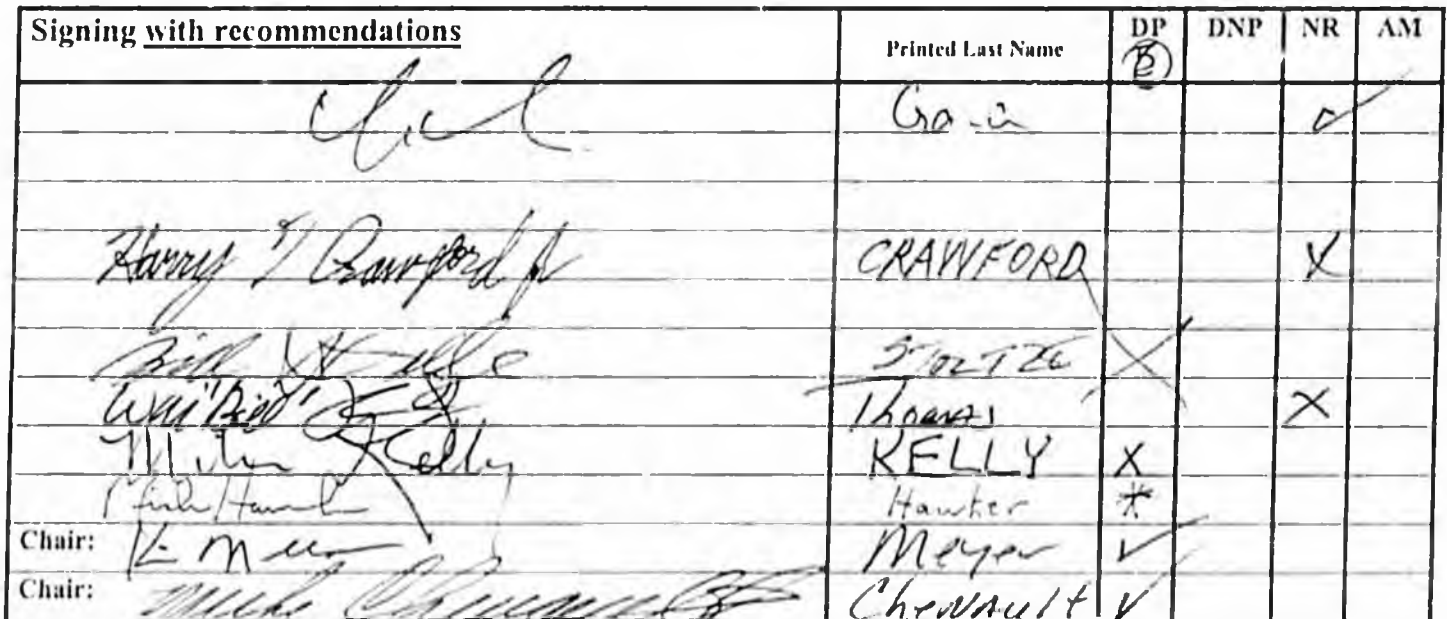 Signing with recommendations Printed Last Name DP DNP NR AM
Harry Crawford Jr CRAWFORD X
Bill Stoltze X
Thomas X
Mike Kelly KELLY X
Mike Hawker Hawker *
Chair: K Meyer Meyer ✓
Chair: Mike Chenault Chenault ✓